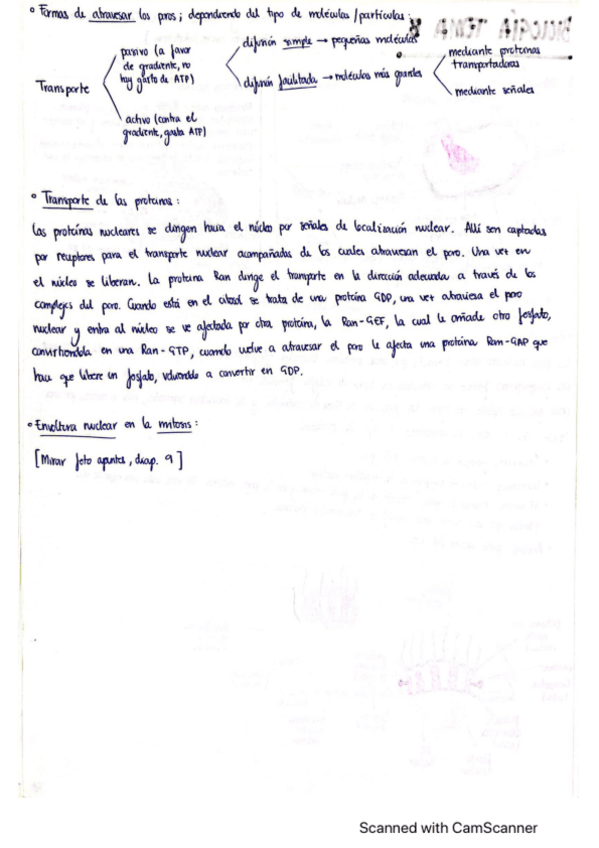 ° Formas de atravesar los poros; dependiendo del tipo de moléculas/partículas:
Transporte
pasivo (a favor
de gradiente, no
hay gasto de ATP)
difusión simple → pequeñas moléculas
difusión facilitada → moléculas más grandes
mediante proteínas
transportadoras
mediante señales
activo (contra el
gradiente, gasta ATP)
BIOLOGÍA TEMA 8
° Transporte de las proteínas:
Las proteínas nucleares se dirigen hacia el núcleo por señales de localización nuclear. Allí son captadas
por receptores para el transporte nuclear acompañadas de los cuales atraviesan el poro. Una vez en
el núcleo se liberan. La proteína Ran dirige el transporte en la dirección adecuada a través de los
complejos del poro. Cuando está en el citosol se trata de una proteína GDP, una vez atraviesa el poro
nuclear y entra al núcleo se ve afectada por otra proteína, la Ran-GEF, la cual le añade otro fosfato,
convirtiéndola en una Ran-GTP, cuando vuelve a atravesar el poro le afecta una proteína Ran-GAP que
hace que libere un fosfato, volviendo a convertir en GDP.
° Envoltura nuclear en la mitosis:
[Mirar foto apuntes, diap. 9]
Scanned with CamScanner